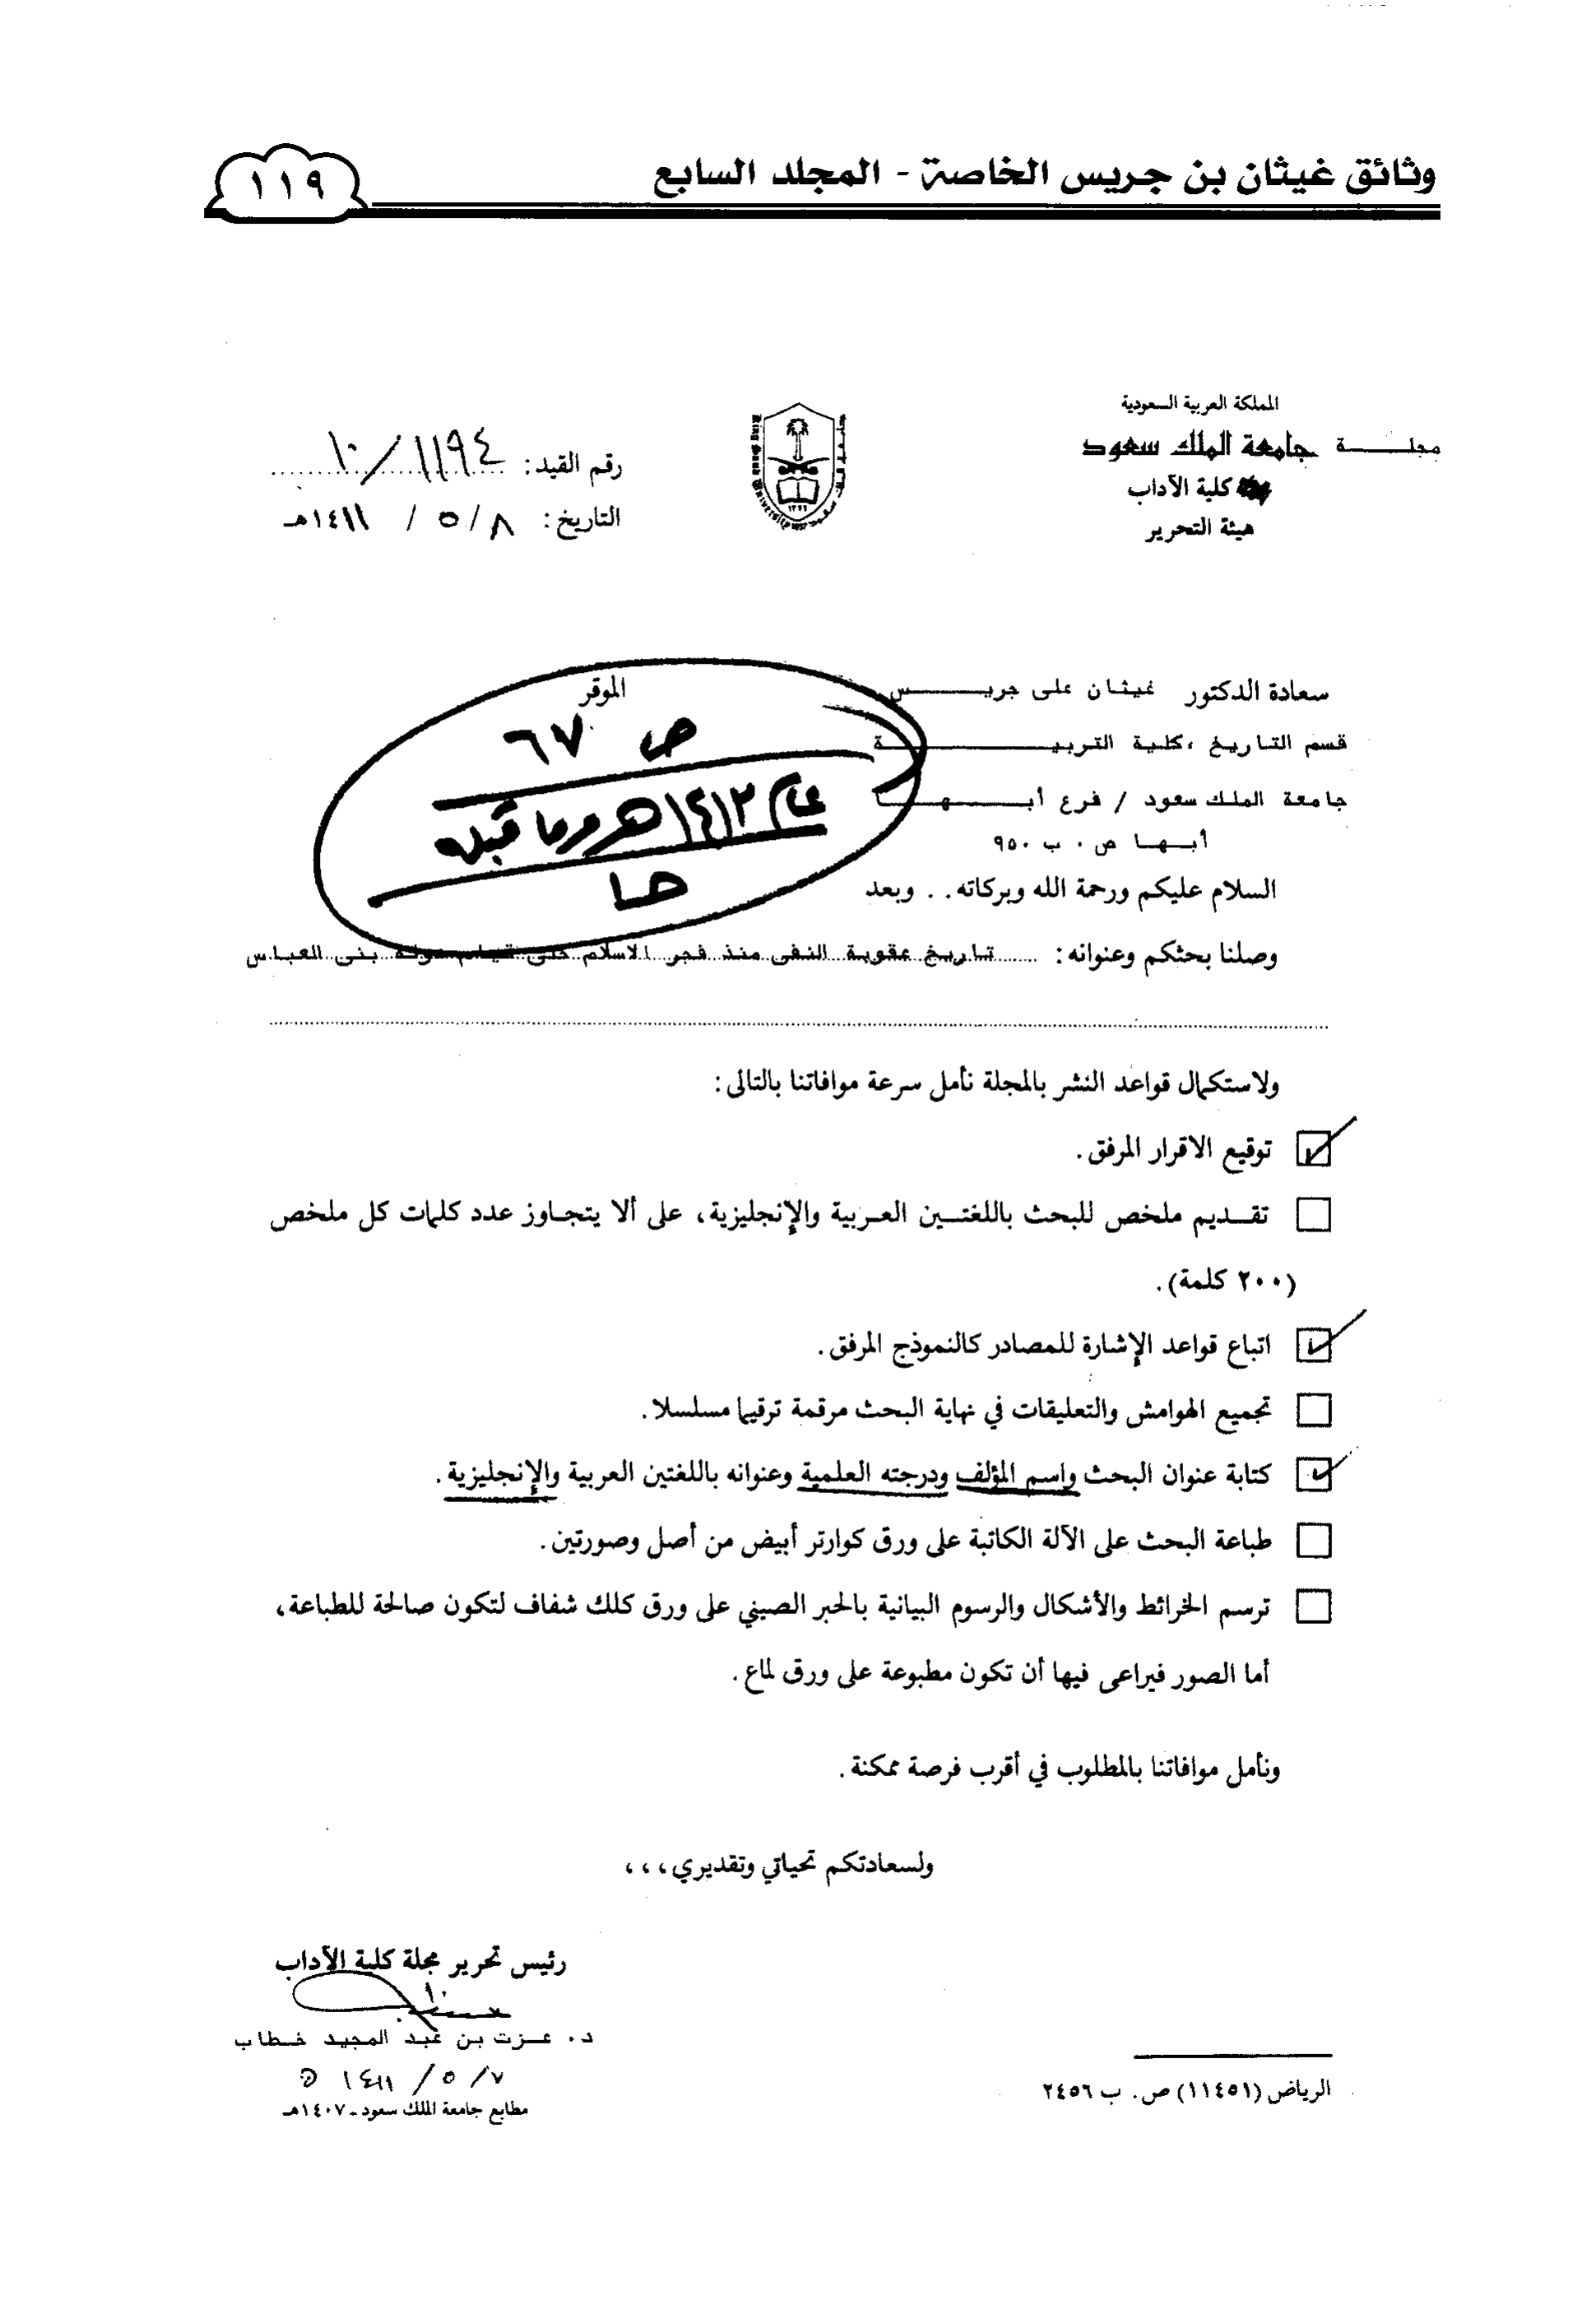 وثائق غيثان بن جريس الخاصة - المجلد السابع
١١٩
المملكة العربية السعودية
مجلـــــة جامعة الملك سعود
كلية الآداب
هيئة التحرير
رقم القيد: ١١٩٤/١٠
التاريخ: ٨/ ٥ / ١٤١١هـ
سعادة الدكتور غيثان على جريـــــس الموقر
قسم التاريخ ،كلية التربيـــــــة
جامعة الملك سعود / فرع أبـــــهـــا
أبــهــا ص ٠ ب ٩٥٠
ص ٦٧
عام ١٤١٢هـ وما قبله
السلام عليكم ورحمة الله وبركاته. . وبعد
وصلنا بحثكم وعنوانه: تاريخ عقوبة النفى منذ فجر الاسلام حتى قيام دولة بنى العباس
ولاستكمال قواعد النشر بالمجلة نأمل سرعة موافاتنا بالتالى:
توقيع الاقرار المرفق.
تقـــديم ملخص للبحث باللغتـــين العـربية والإنجليزية، على ألا يتجـاوز عدد كلمات كل ملخص
(٢٠٠ كلمة).
اتباع قواعد الإشارة للمصادر كالنموذج المرفق.
تجميع الهوامش والتعليقات في نهاية البحث مرقمة ترقيما مسلسلا.
كتابة عنوان البحث واسم المؤلف ودرجته العلمية وعنوانه باللغتين العربية والإنجليزية.
طباعة البحث على الآلة الكاتبة على ورق كوارتر أبيض من أصل وصورتين.
ترسم الخرائط والأشكال والرسوم البيانية بالحبر الصيني على ورق كلك شفاف لتكون صالحة للطباعة،
أما الصور فيراعى فيها أن تكون مطبوعة على ورق لماع.
ونأمل موافاتنا بالمطلوب في أقرب فرصة ممكنة.
ولسعادتكم تحياتي وتقديري،،،
رئيس تحرير مجلة كلية الآداب
د٠ عــزت بـن عبد المجيد خـطاب
٧/ ٥/ ١٤١١ هـ
مطابع جامعة الملك سعود ـ ١٤٠٧هـ
الرياض (١١٤٥١) ص. ب ٢٤٥٦